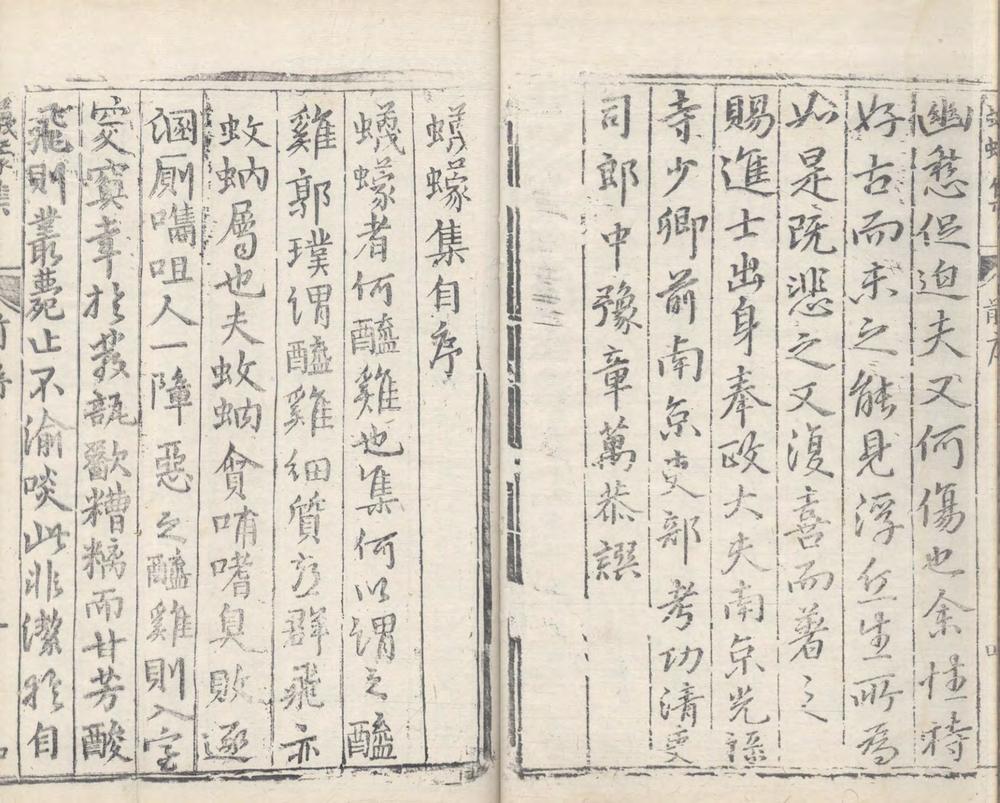 幽愁促迫夫又何傷也余性特
好古而未之能見浮丘生所為
如是既悲之又復喜而著之
賜進士出身奉政大夫南京光祿
寺少卿前南京吏部考功清吏
司郎中豫章萬恭譔
蠛蠓集自序
蠛蠓者何醯雞也集何以謂之醯
雞郭璞謂醯雞細質亂群飛亦
蚊蚋屬也夫蚊蚋貪啃嗜臭敗逐
溷厠噆咀人一障惡之醯雞則入室
突奧幸於發瓿歠糟糟而甘芳酸
飛則叢薨止不渝啖此非潔於自